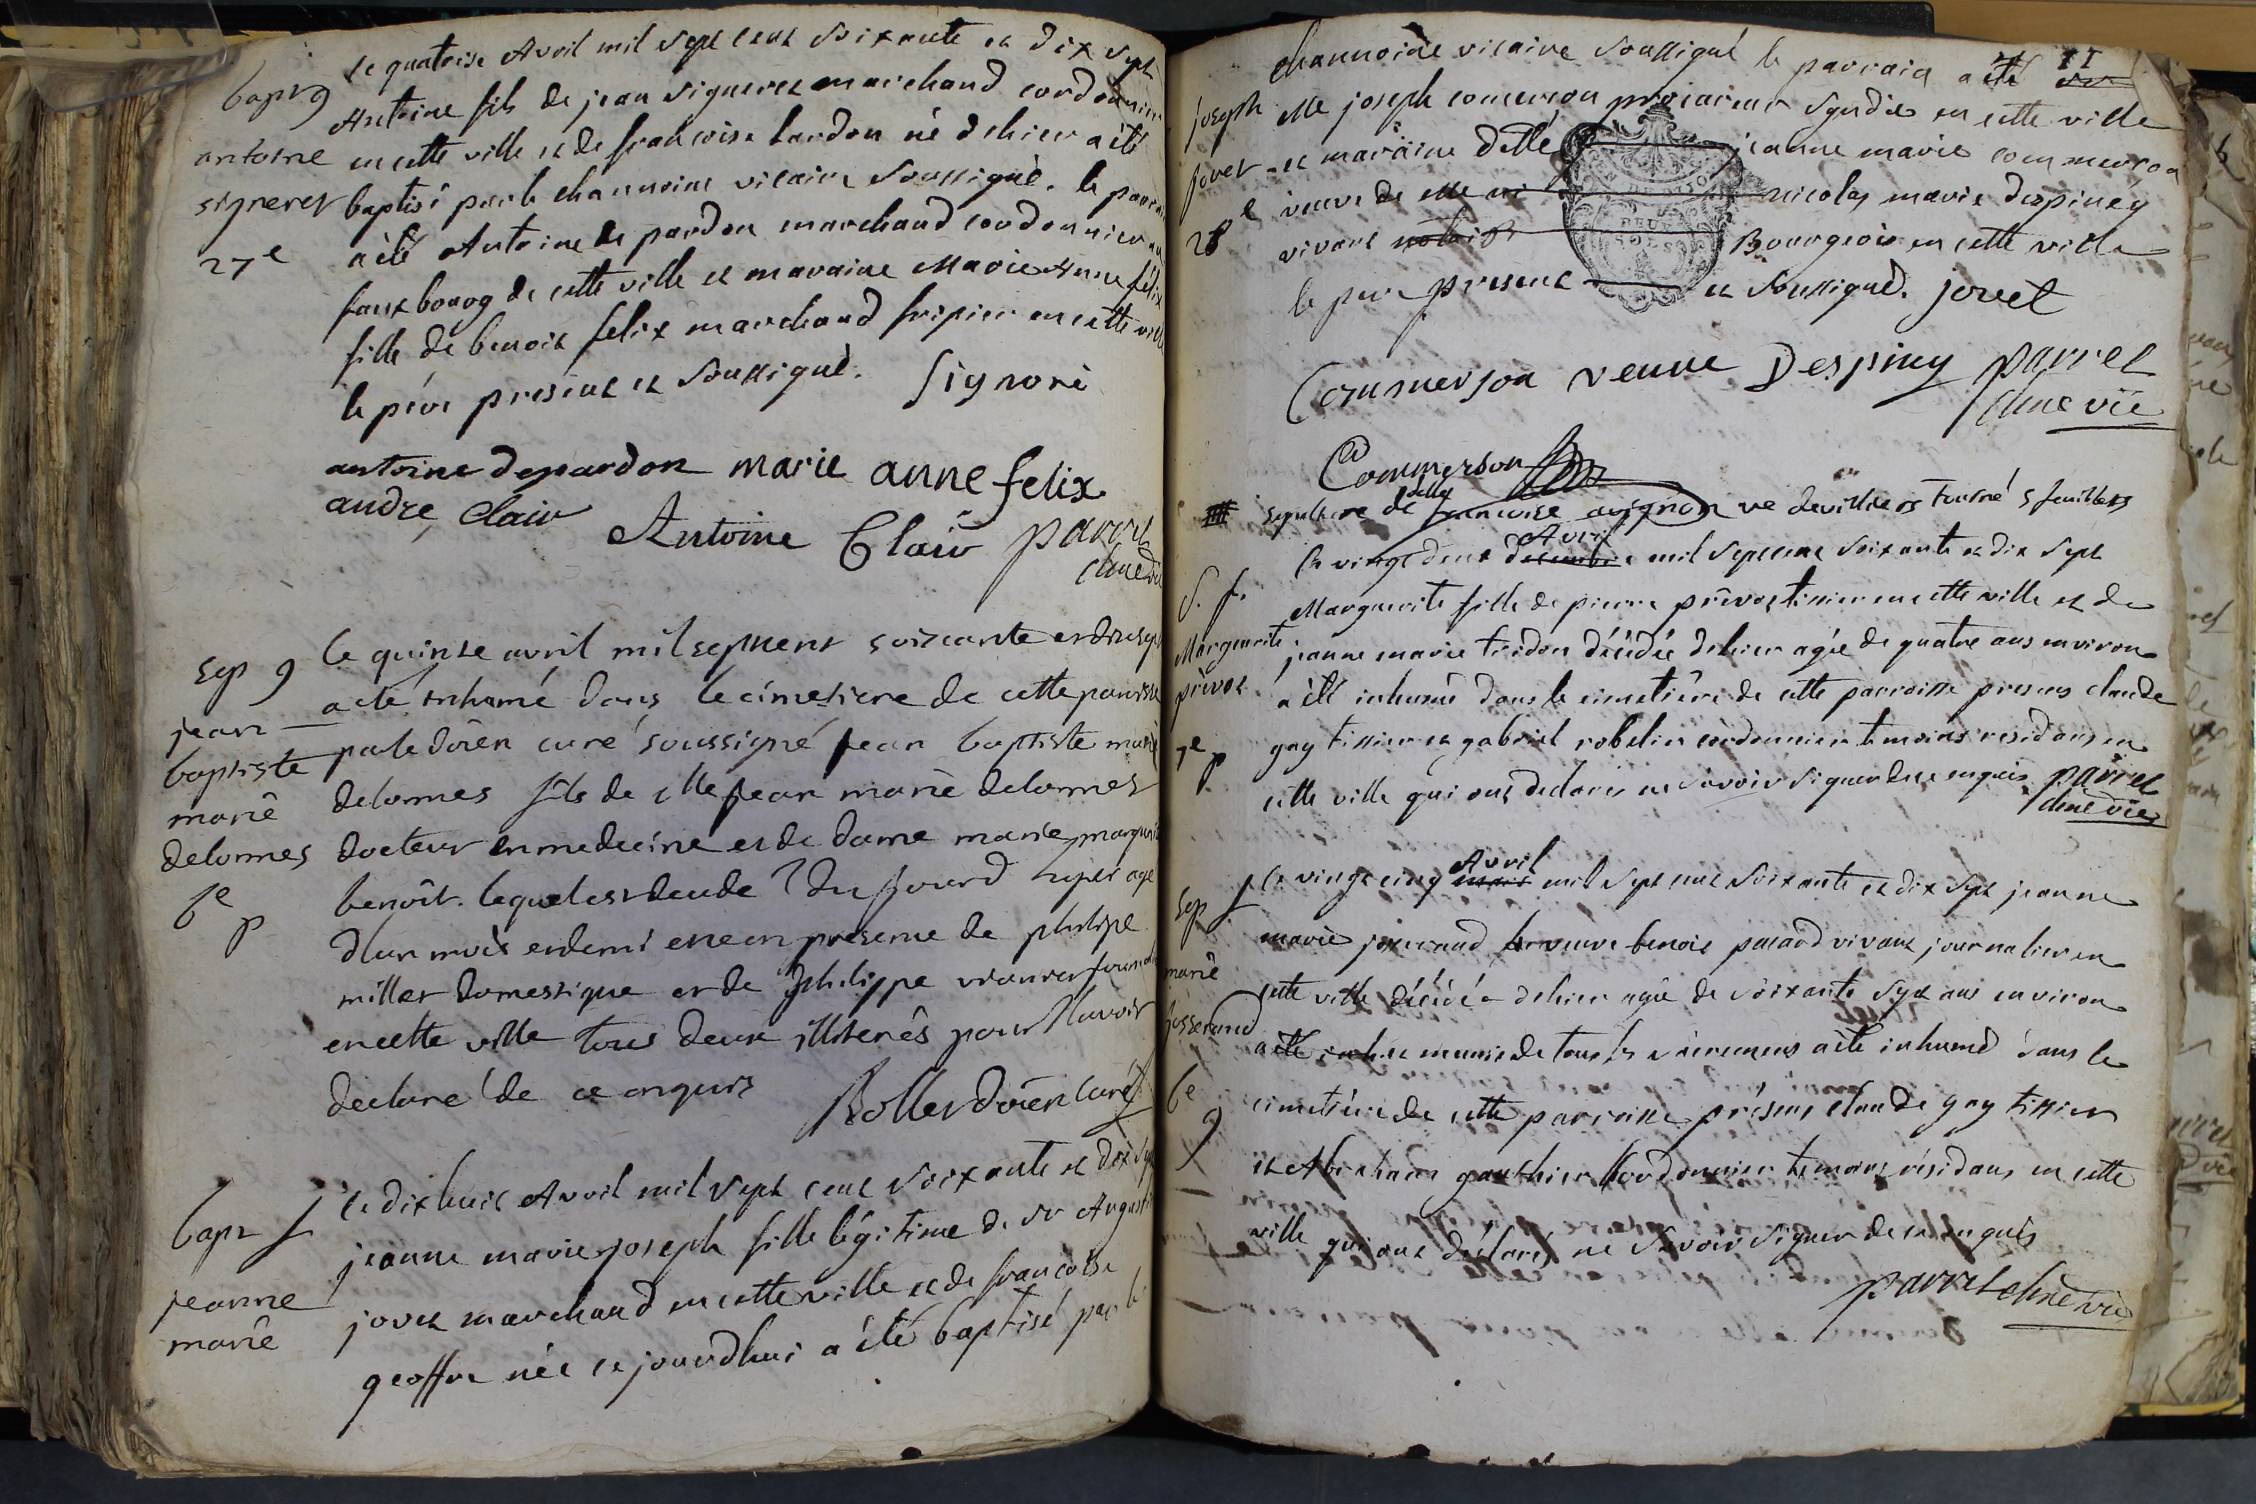 le quatorze Avril mil Sept cent Soixante et dix Sept
bapt g
Antoine fils de jean Signeret marchand cordonnier
antoine
en cette ville et de francoise lardon né d'hier a été
signeret
baptisé par le channoine vicaire Soussigné. le parrain
27e
a été Antoine de pardon marchand cordonnier au
fauxbourg de cette ville et maraine Marie Anne félix
fille de benoit felix marchand fripier en cette ville
le pére present et Soussigné. Signore
antoine depardon marie anne felix
andre Clair Antoine Clair parret
chne vic
Sep g
le quinze avril mil sept cent soixante et dix sept
a eté inhumé dans le cimetiere de cette paroisse
jean
baptiste
par le doïen curé soussigné jean baptiste marie
delormes fils de Me jean marie delormes
marie
delormes
docteur en medecine et de dame marie marguerite
benoît. lequel est decede agé
6e p
d'un mois et demi et ce en presence de philipe
millet domestique et de philippe
en cette ville tous deux illiterés pour l'avoir
declaré de ce enquis Rollet doïen curé
bapt f
le dix huit Avril mil Sept cent Soixante et dix Sept
jeanne marie joseph fille légitime de Sr Augustin
jeanne
marie
jovet marchand en cette ville et de francoise
geoffre née ce jourdhui a été baptisé par le
channoine vicaire Soussigné le parrain a été
joseph
Me joseph comerson procureur Syndic en cette ville
jovet
et maraine Delle jeanne marie commerson
28e
veuve de Me nicolas marie despiney
vivant Bourgeois en cette ville
le pere present et Soussigné. jovet
Commerson veuve Despiney parret
chne vic
Commerson
sepulture de delle francoise avignon ve devilliers tourné 5 feuillets
Le vingt deux Avril mil Sept cent Soixante et dix Sept
S. f.
Marguerite fille de pierre prévost tissier en cette ville et de
Marguerite
jeanne marie tridon décédée d'hier agée de quatre ans environ
prévot
a été inhumé dans le cimetière de cette parroisse presens claude
7e p
gay tissier et gabriel robelin cordonnier temoins residans en
cette ville qui ont declaré ne Savoir Signer de ce enquis parret
chne vic
Sep f
Le vingt cinq Avril mil Sept cent Soixante et dix Sept jeanne
marie josserand veuve benoit pacard vivant journalier en
marie
cette ville décédée d'hier agée de soixante Sept ans environ
josserand
a été munie de tous les sacremens a été inhumé dans le
6e g
cimetière de cette parroisse présens claude gay tissier
et Abraham gauthier cordonnier temoins résidans en cette
ville qui ont déclaré ne Savoir Signer de ce enquis
parret chne vic